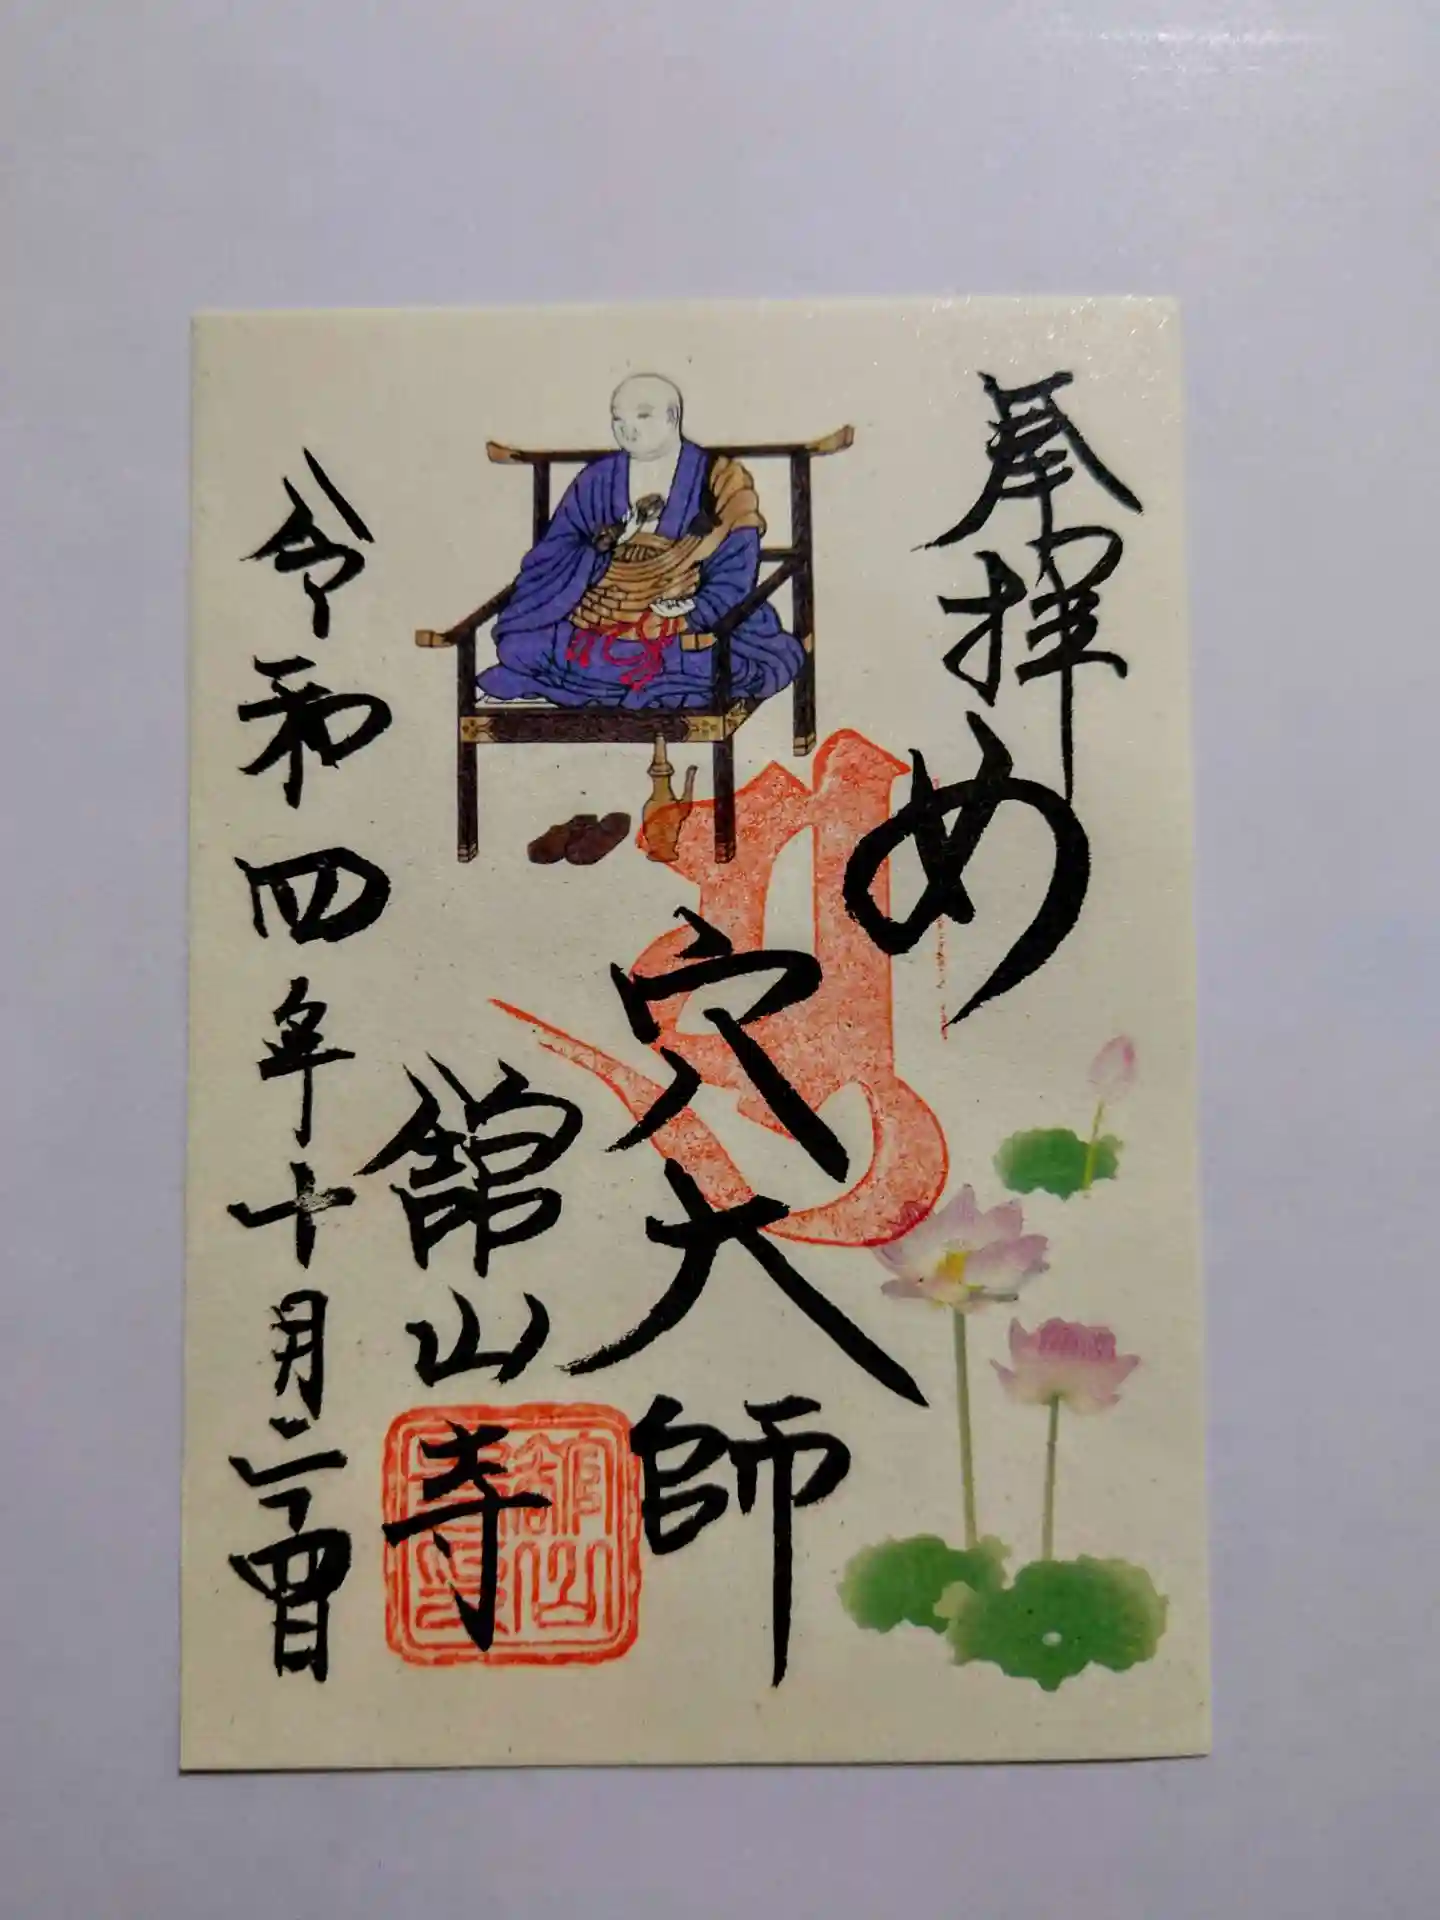 奉拝
め
穴大師
舘山寺
令和四年十月二十四日